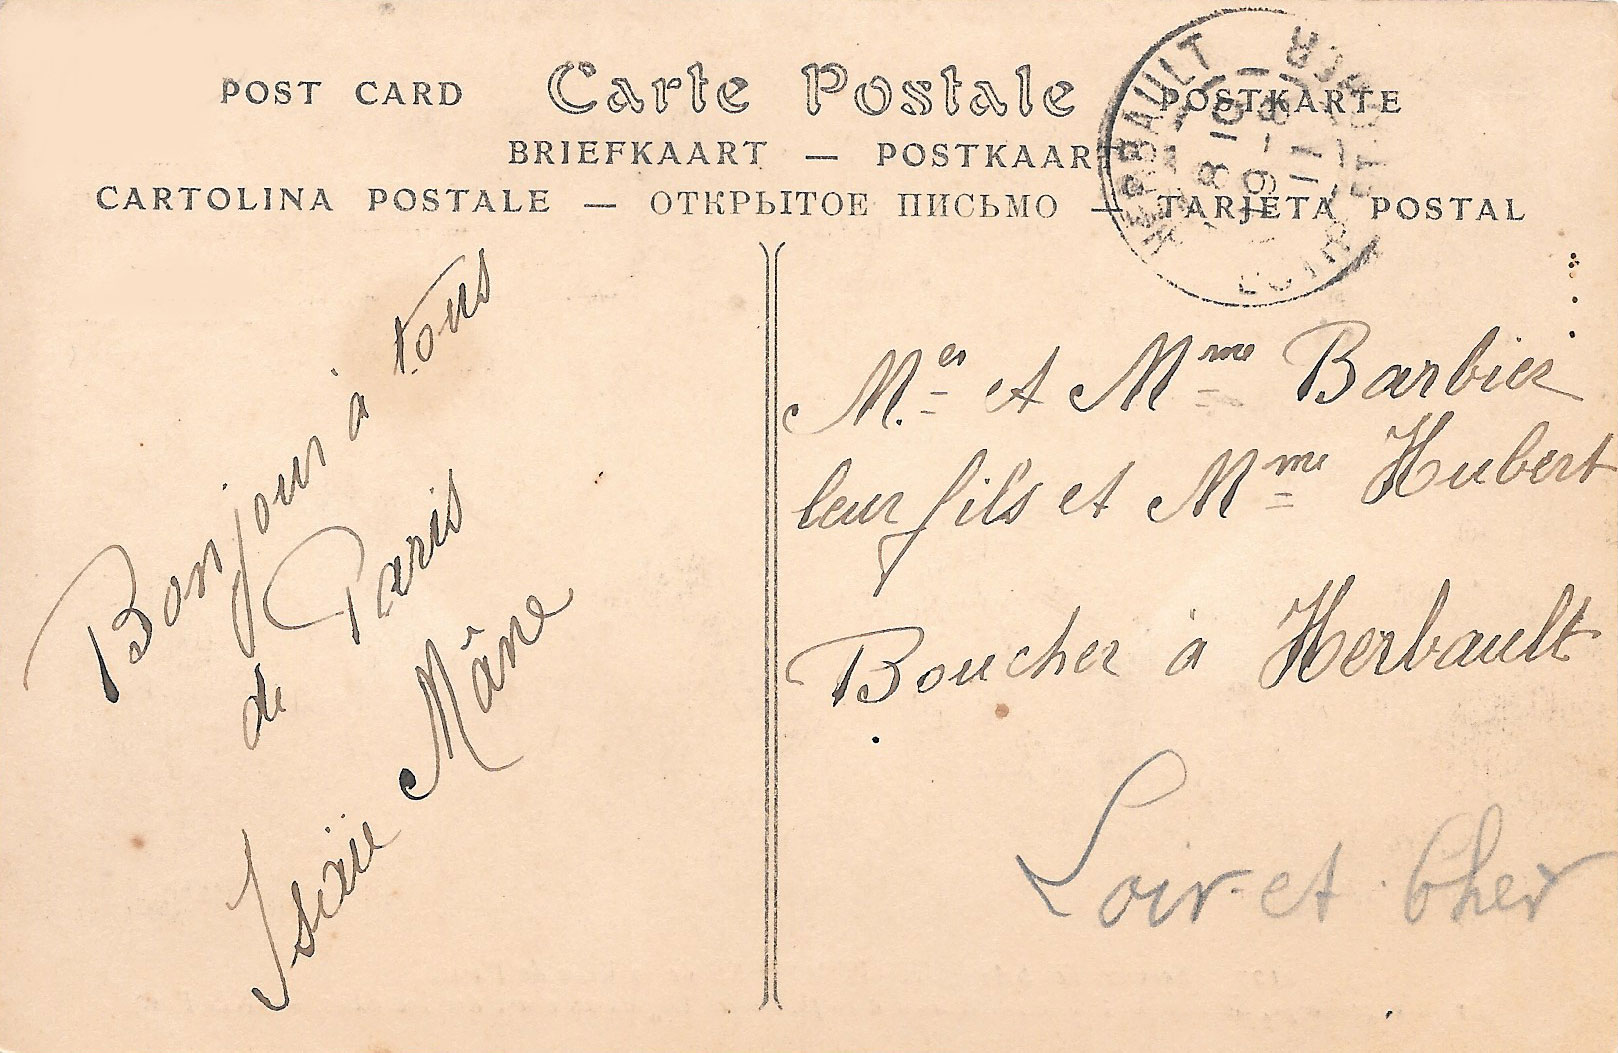 POST CARD Carte Postale POSTKARTE
BRIEFKAART — POSTKAART
CARTOLINA POSTALE — ОТКРЫТОЕ ПИСЬМО — TARJETA POSTAL
HERBAULT
LOIR-ET-CHER
Bonjour à tous
de Paris
Isaïe Mâne
Mer et Mme Barbier
leur fils et Mme Hubert
Boucher à Herbault
Loir-et-Cher